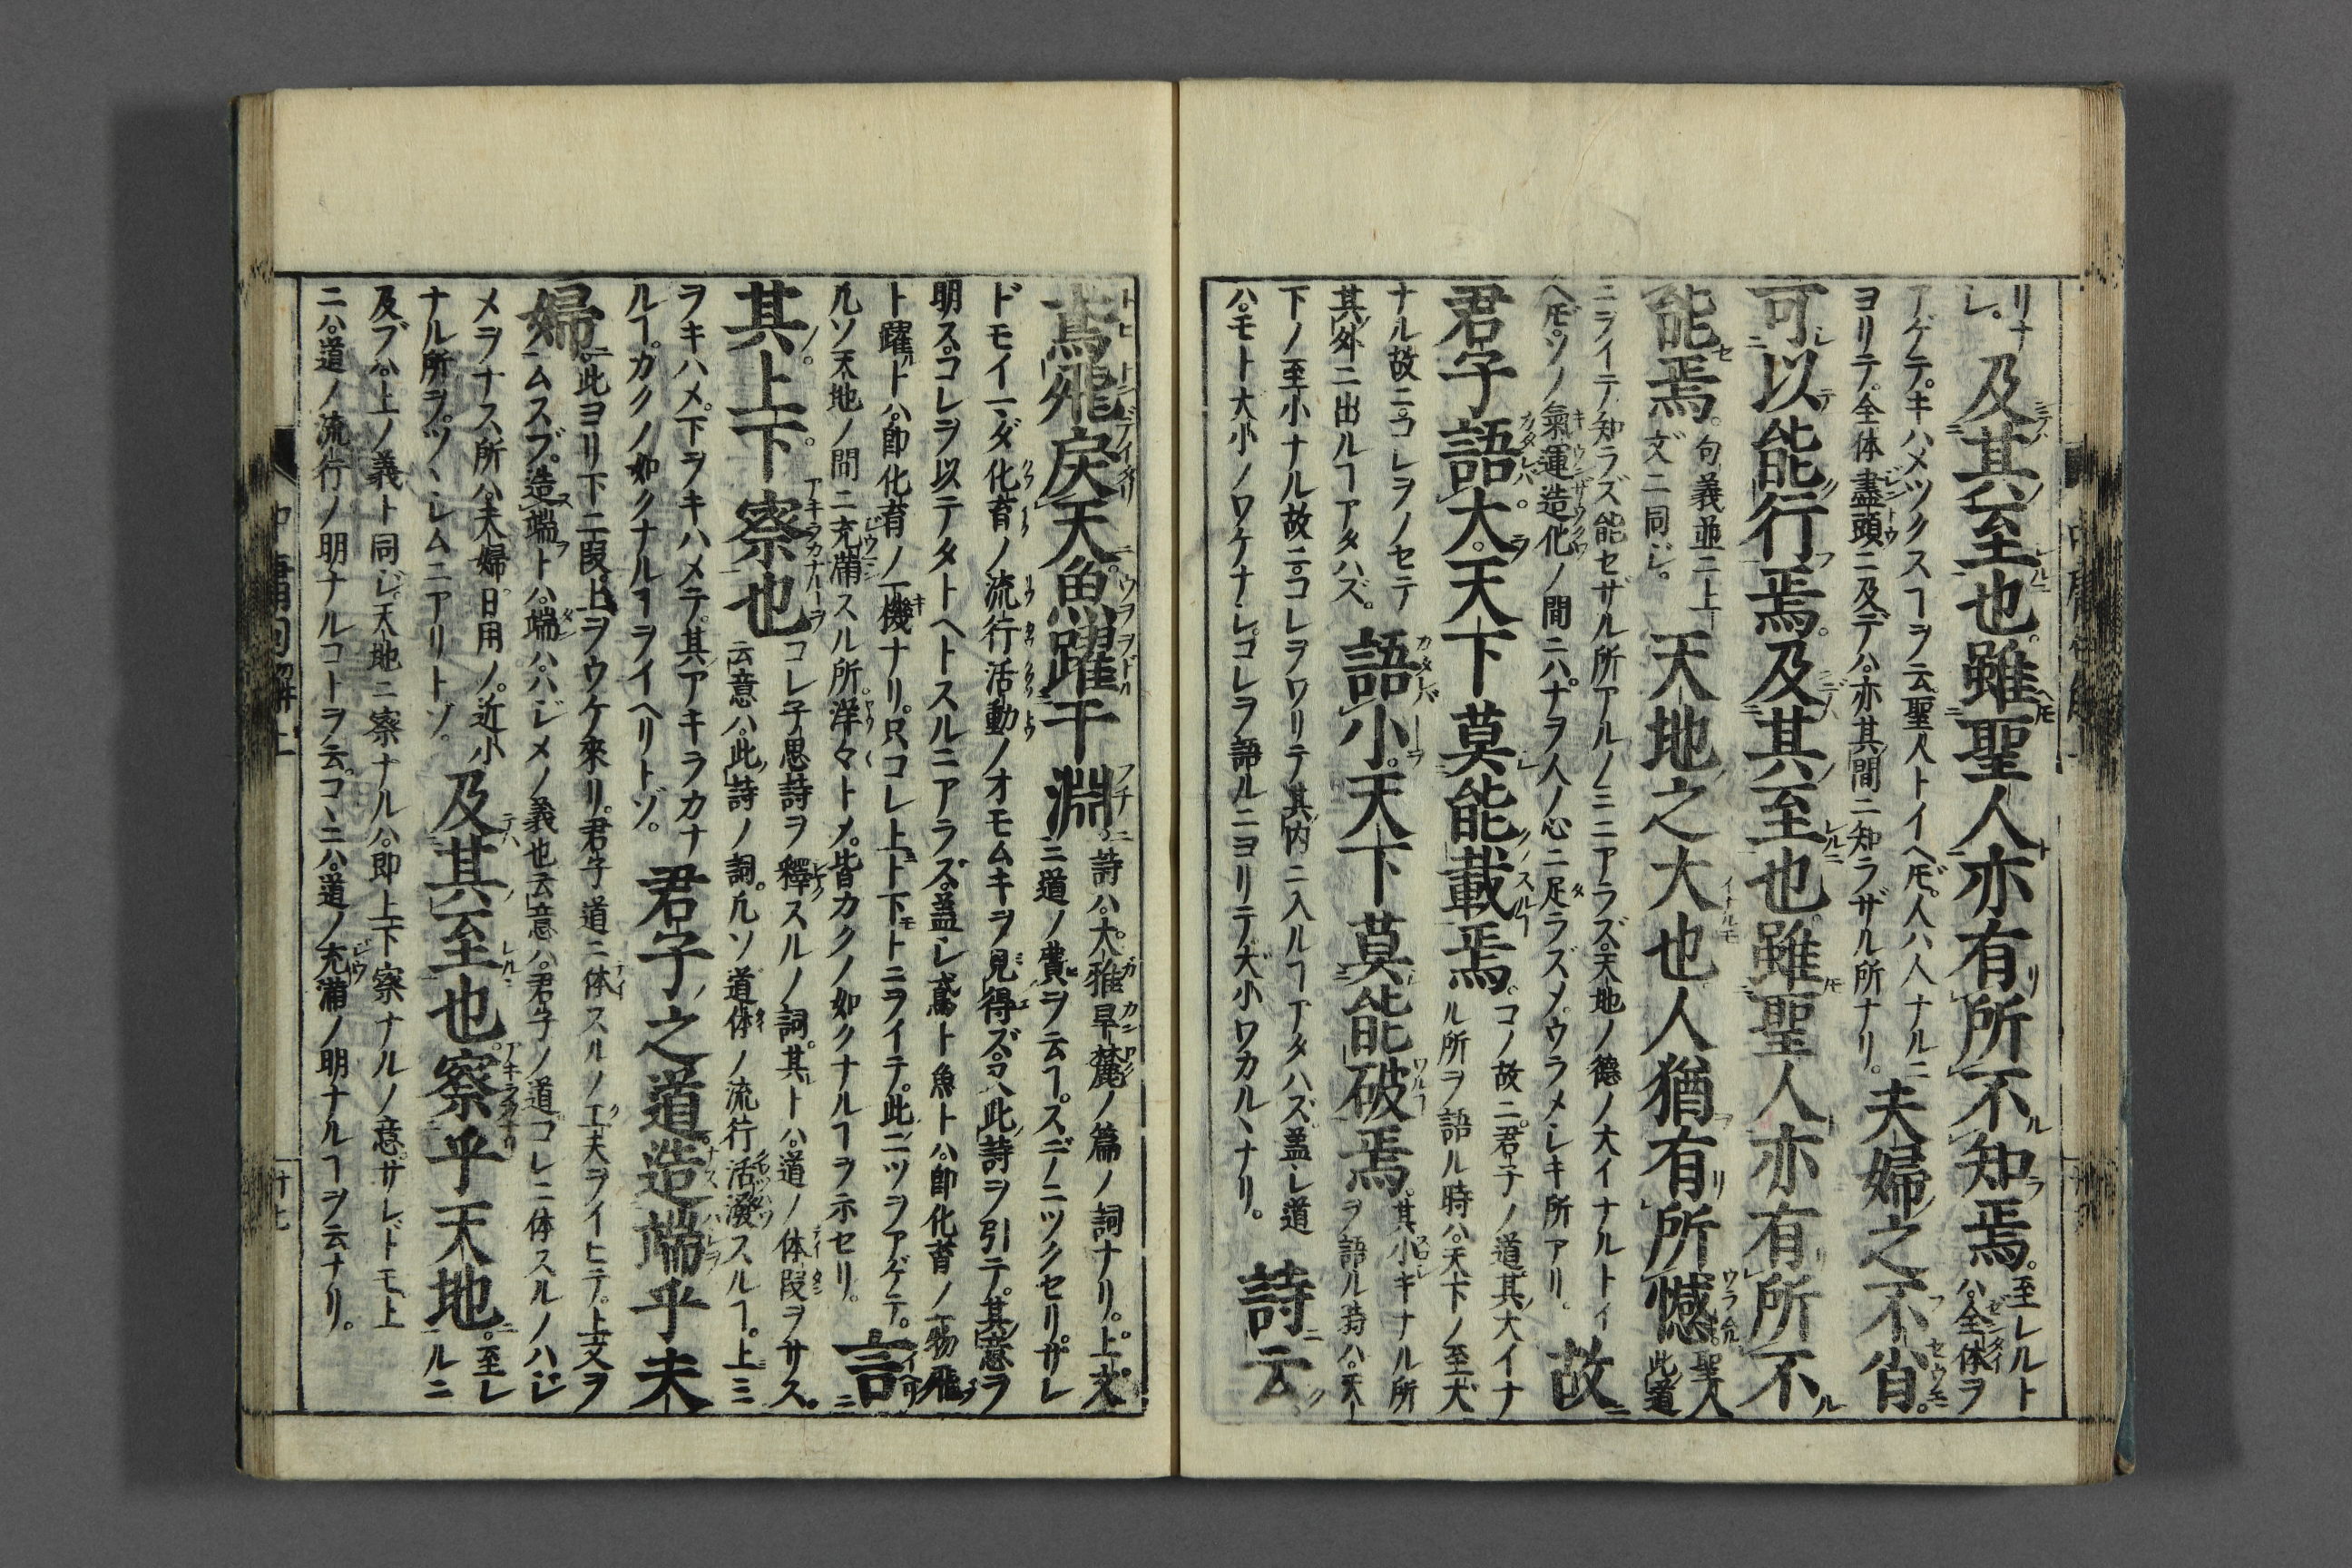 リナ
レ。
及其至也。雖聖人亦有所不知焉。
至レルト
ハ。全体ヲ
アゲテ。キハメツクスヿヲ云聖人トイヘ𪜈。人ハ人ナルニ
ヨリテ。全体盡頭ニ及デハ。亦其間ニ知ラザル所ナリ。
夫婦之不肖。
可以能行焉。及其至也雖聖人亦有所不
能焉。
句義並ニ上
文ニ同ジ。
天地之大也人猶有所憾
聖人
此道
ニヲイテ知ラズ能セザル所アルノミニアラズ。天地ノ德ノ大イナルトイ
ヘ𪜈。ソノ氣運造化ノ間ニハ。ナヲ人ノ心ニ足ラズメ。ウラメシキ所アリ。
故
君子語大。天下莫能載焉。
コノ故ニ。君子ノ道其大イナ
ル所ヲ語ル時ハ。天下ノ至大
ナル故ニ。コレヲノセテ
其外ニ出ルヿアタハズ。
語小。天下莫能破焉。
其小キナル所
ヲ語ル時ハ。天
下ノ至小ナル故ニ。コレヲワリテ其内ニ入ルヿアタハズ。盖シ道
ハ。モト大小ノワケナシ。コレヲ語ルニヨリテ大小ワカルヽナリ。
詩云
鳶飛戾天魚躍于淵。
詩ハ。大雅旱麓ノ篇ノ詞ナリ。上文
ニ道ノ費ヲ云ヿ。スデニツクセリ。サレ
ドモイマダ化育ノ流行活動ノオモムキヲ見得ズ。コヽニ此詩ヲ引テ。其意ヲ
明ス。コレヲ以テタトヘトスルニアラズ。盖シ鳶ト魚トハ。卽化育ノ一物飛
ト躍トハ。卽化育ノ一機ナリ。只コレ上ト下トニヲイテ。此二ツヲアゲテ。
凡ソ天地ノ間ニ充滿スル所。洋々トメ。皆カクノ如クナルヿヲ示セリ。
言
其上下察也
コレ子思詩ヲ釋スルノ詞。其トハ。道ノ体段ヲサス。
云意ハ。此詩ノ詞。凡ソ道体ノ流行活潑スルヿ。上ミ
ヲキハメ。下ヲキハメテ。其アキラカナ
ルヿ。カクノ如クナルヿヲイヘリトゾ。
君子之道。造端乎夫
婦。
此ヨリ下二段。上ヲウケ來リ。君子道ニ体スルノ工夫ヲイヒテ。上文ヲ
ムスブ。造端トハ。端ハ。ハジメノ義也云意ハ。君子ノ道。コレニ体スルノハジ
メヲナス所ハ。夫婦日用ノ。近小
ナル所ヲ。ツヽシムニアリトゾ。
及其至也。察乎天地。
至レ
ルニ
及ブハ。上ノ義ト同ジ。天地ニ察ナルハ。卽上下察ナルノ意。サレドモ。上
ニハ。道ノ流行ノ明ナルコトヲ云。コヽニハ。道ノ充滿ノ明ナルヿヲ云ナリ。
十七